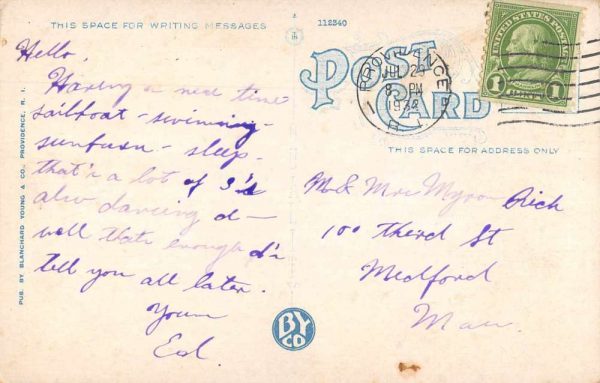 THIS SPACE FOR WRITING MESSAGES
112340
POST CARD
PROVIDENCE
JUL 29
8 PM
R I
UNITED STATES POSTAGE
1 1
THIS SPACE FOR ADDRESS ONLY
Hello.
Having a nice time
sailboat - swimming -
sunburn - sleep.
that's a lot of S's
also dancing d—
well that's enough
tell you all later.
Your
Ed.
Mr & Mrs Myron Rich
100 Third St
Medford
Mass.
PUB. BY BLANCHARD YOUNG & CO., PROVIDENCE, R. I.
BY
CO